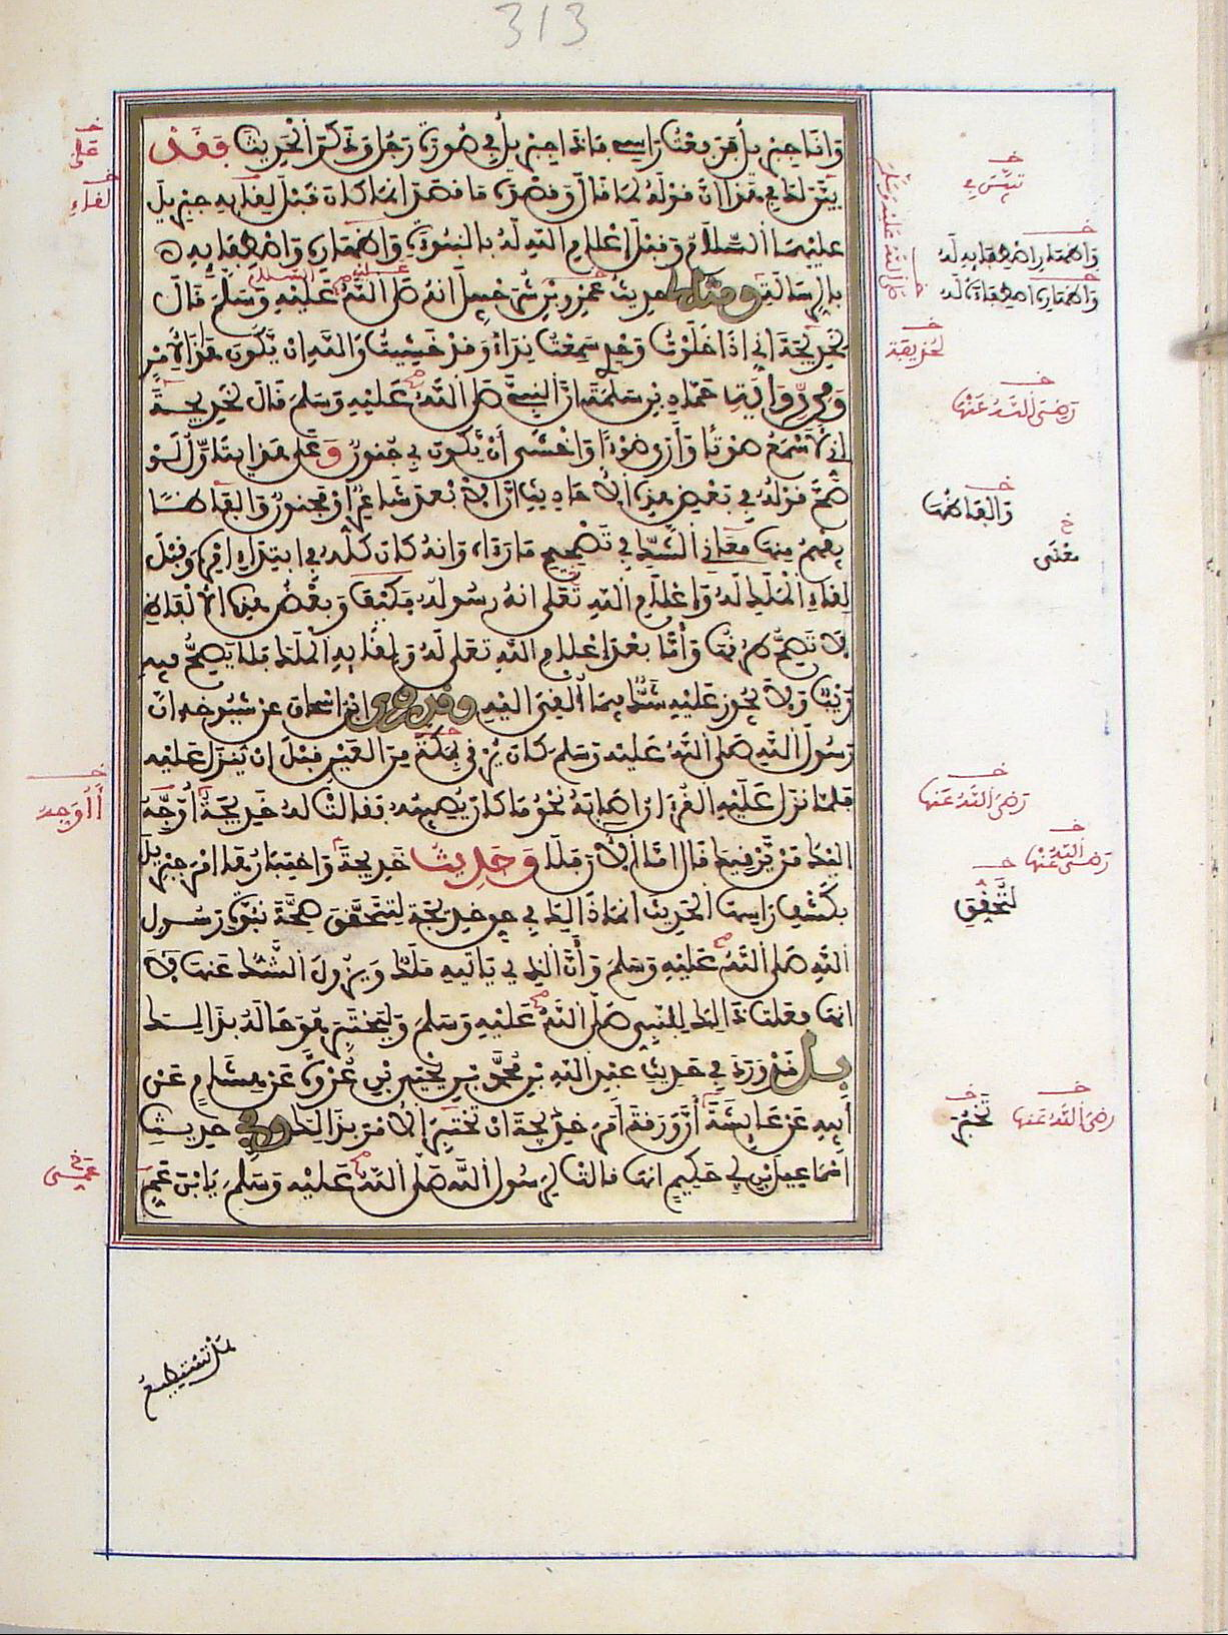 313
وأنا جبريل فرفعت رأسي فإذا جبريل في صورة رجل وذكر الحديث فقد
بين لك في هذا أن قوله لما قال وقصده ما قصد إنما كان قبل لقائه جبريل
عليهما السلام وقبل إعلام الله له بالنبوة وإظهاره واصطفائه
بالرسالة ومثله حديث عمرو بن شرحبيل أنه صلى الله عليه وسلم قال
لخديجة إني إذا خلوت وحدي سمعت نداء وقد خشيت والله أن يكون هذا الأمر
ومن رواية حماد بن سلمة أن النبي صلى الله عليه وسلم قال لخديجة
إني لأسمع صوتا وأرى ضوءا وأخشى أن يكون بي جنون وعلى هذا يتأول لو
صح قوله في بعض هذه الأحاديث إن الأبعد شاعر أو مجنون وألفاظا
يفهم منها معاني الشك في تصحيح ما رآه وأنه كان كله في ابتداء أمره وقبل
لقاء الملك له وإعلام الله تعلى أنه رسوله فكيف وبعض هذه الألفاظ
لا تصح طرقها وأما بعد إعلام الله تعلى له ولقائه الملك فلا يصح فيه
ريب ولا يجوز عليه شك فيما ألقي إليه وقد روى ابن إسحاق عن شيوخه أن
رسول الله صلى الله عليه وسلم كان يرقى بمكة من العين قبل أن ينزل عليه
فلما نزل عليه القرآن أصابه نحو ما كان يصيبه فقالت له خديجة أوجه
إليك من يرقيك قال أما الآن فلا وحديث خديجة واختبارها أمر جبريل
بكشف رأسها الحديث إنما ذلك في حق خديجة لتتحقق صحة نبوة رسول
الله صلى الله عليه وسلم وأن الذي يأتيه ملك ويزول الشك عنها لا
أنها فعلت ذلك للنبي صلى الله عليه وسلم وليختبر هو حاله بذلك
بل قد ورد في حديث عبد الله بن محمد بن يحيى بن عروة عن هشام عن
أبيه عن عائشة أن ورقة أمر خديجة أن تختبر الأمر بذلك وفي حديث
إسماعيل بن أبي حكيم أنها قالت لرسول الله صلى الله عليه وسلم يا بن عم
هل تستطيع
على
لقاء
أوجه
عمي
واصطفائه له
رضي الله عنها
وألفاظها
معنى
رضي الله عنها
رضي الله عنها
لتحقق
رضي الله عنها
تخبر
صلى الله عليه وسلم